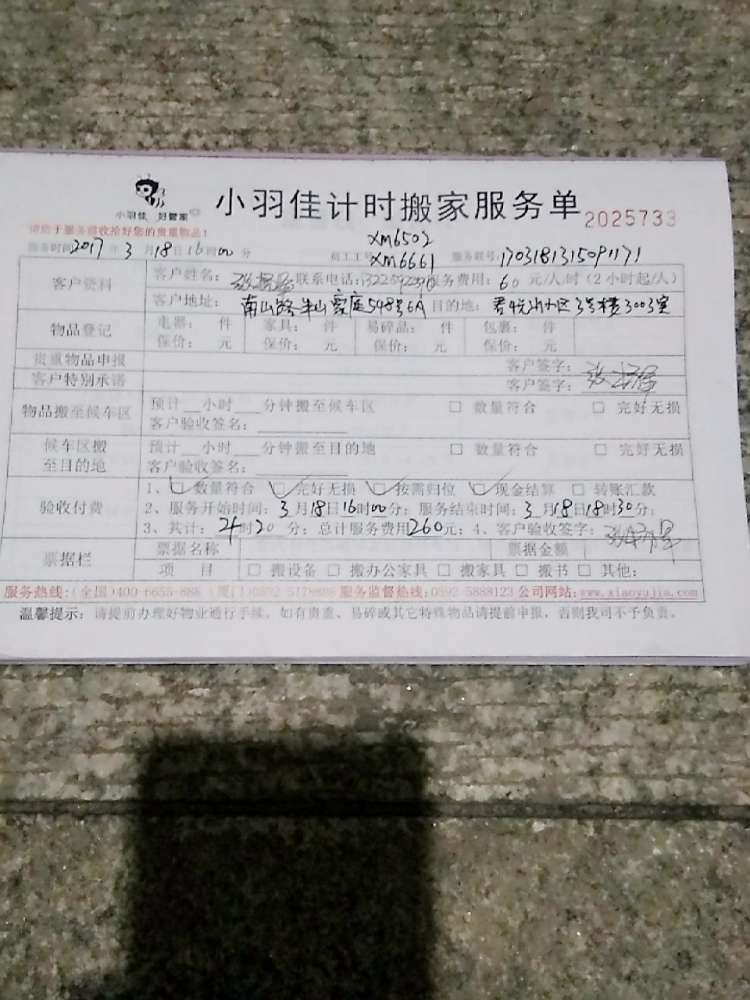 小羽佳 好管家
小羽佳计时搬家服务单 2025733
请您于服务前收拾好您的贵重物品!
服务时间2017年3月18日16时00分 员工工号 XM6502 XM6661 服务联号:170318131509171
客户资料 客户姓名: 联系电话: 服务费用:60元/人/时(2小时起/人)
客户地址: 南山路半山 548号6A 目的地: 小区3号楼3003室
物品登记 电器: 件 家具: 件 易碎品: 件 包裹: 件
保价: 元 保价: 元 保价: 元 保价: 元
贵重物品申报 客户签字:
客户特别承诺 客户签字:
物品搬至候车区 预计__小时___分钟搬至候车区 □ 数量符合 □ 完好无损
客户验收签名:
候车区搬至目的地 预计__小时___分钟搬至目的地 □ 数量符合 □ 完好无损
客户验收签名:
验收付费 1、□数量符合 □完好无损 □按需归位 □现金结算 □ 转账汇款
2、服务开始时间:3月18日16时00分;服务结束时间:3月18日18时30分;
3、共计: 2时20分;总计服务费用260元;4、客户验收签字:
票据栏 票据名称 票据金额
项 目 □ 搬设备 □ 搬办公家具 □ 搬家具 □ 搬书 □ 其他:
服务热线:(全国)400-6655-886 (厦门)0592 5178888 服务监督热线:0592 5888123 公司网站:www.xiaoyujia.com
温馨提示:请提前办理好物业通行手续。如有贵重、易碎或其它特殊物品请提前申报,否则我司不予负责。